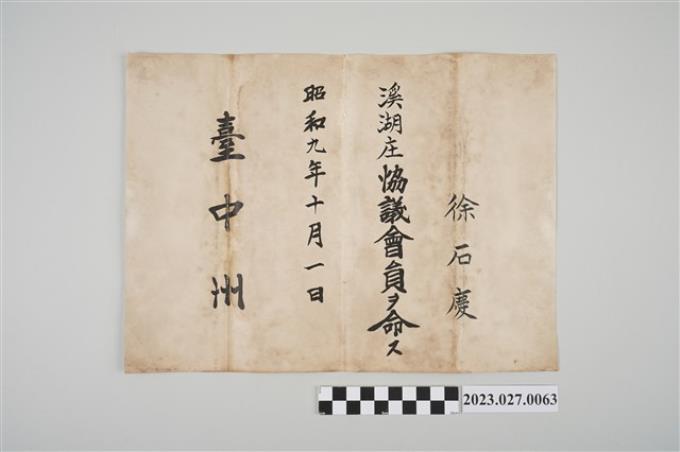 徐石慶
溪湖庄協議會員ヲ命ス
昭和九年十月一日
臺中州
2023.027.0063